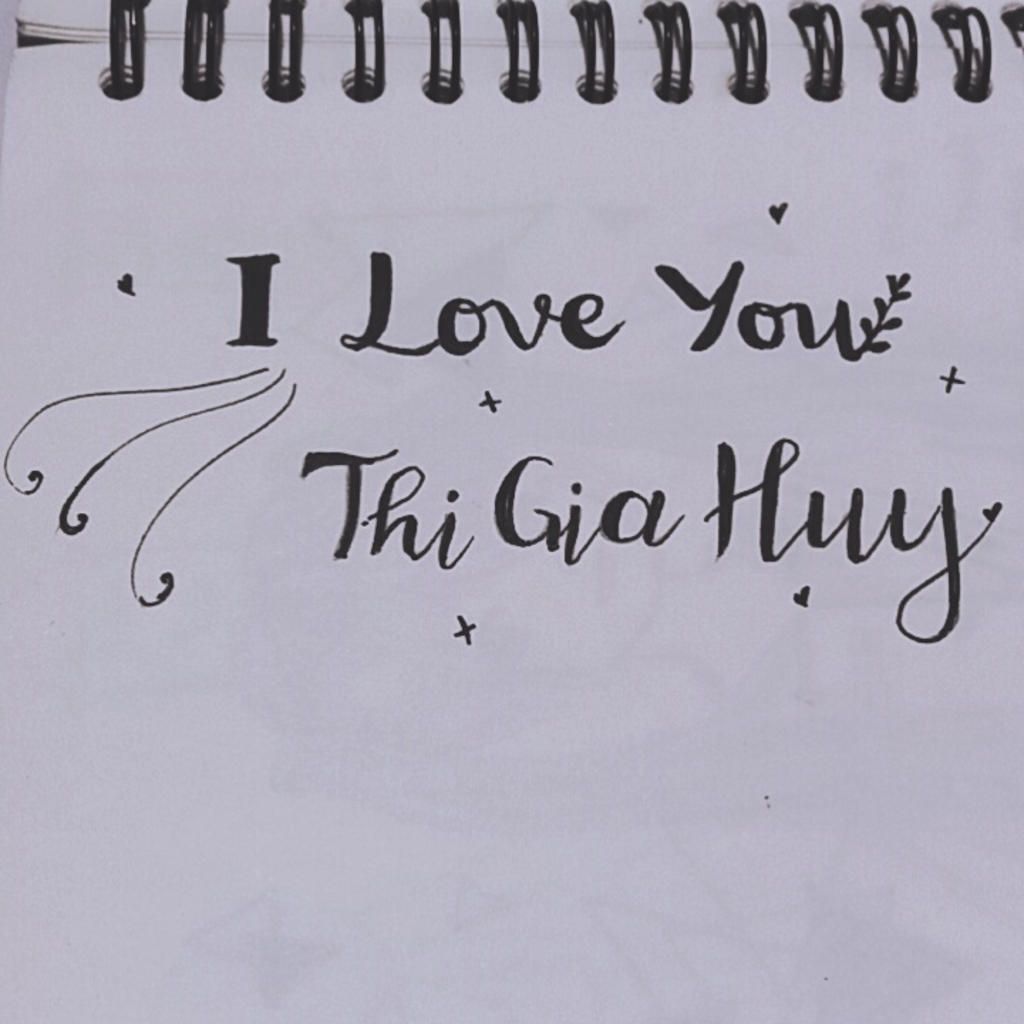 I Love You
Thi Gia Huy